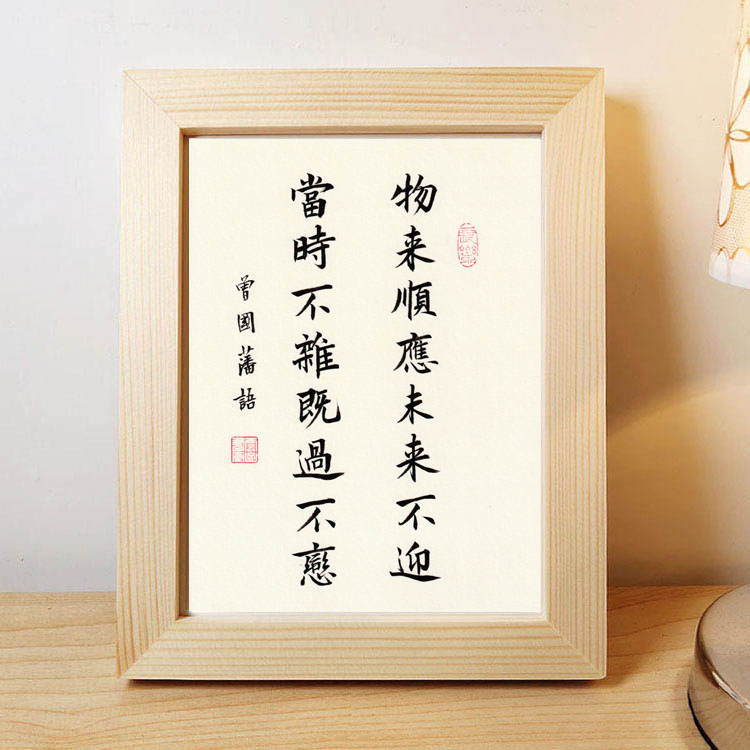 物来順應未来不迎
當時不雜既過不戀
曾國藩語